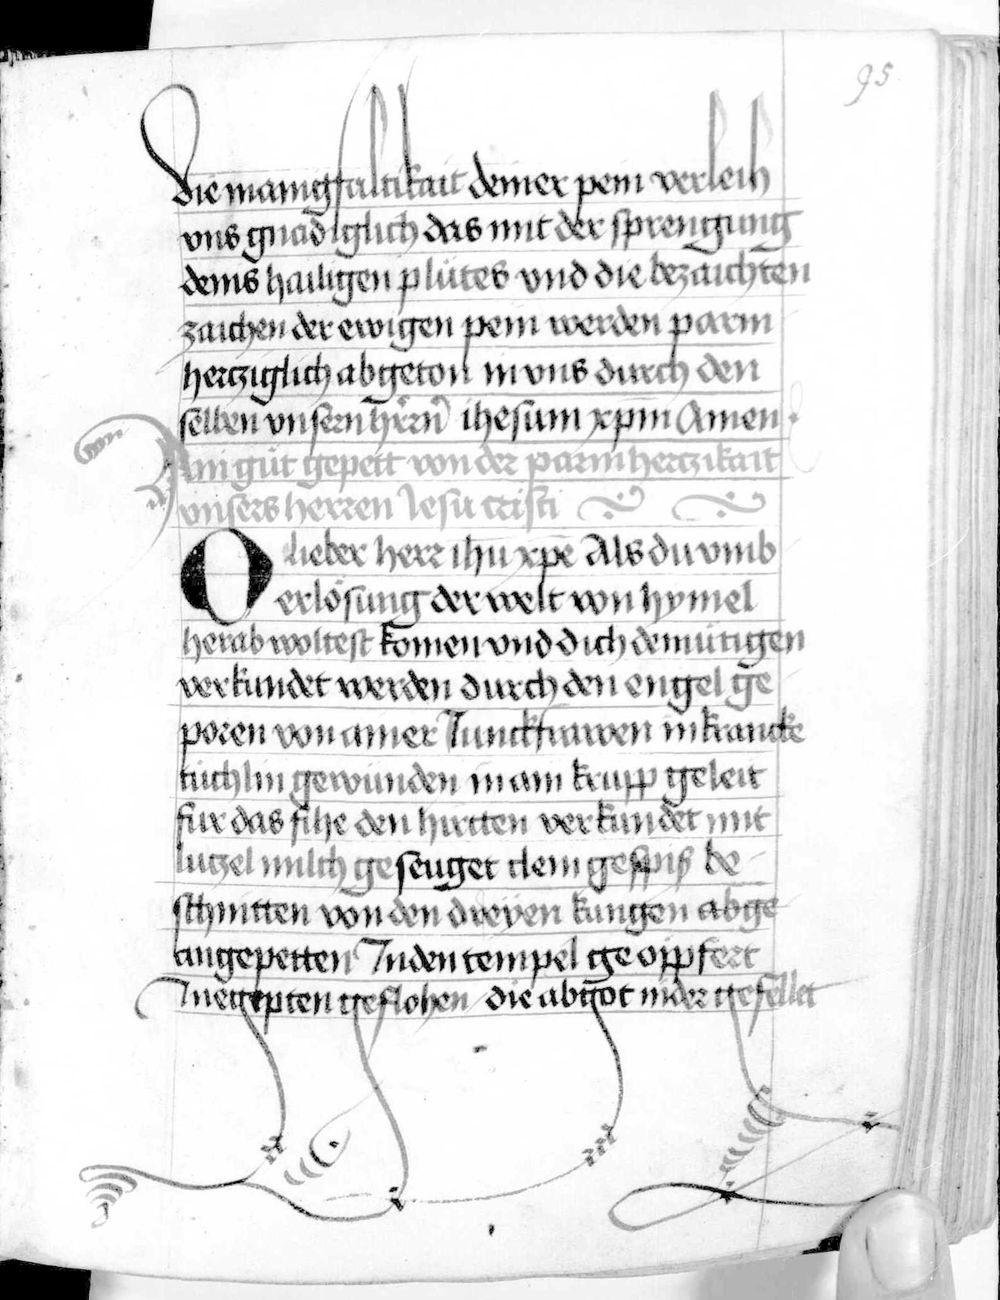 95
Die manigfaltikait demer pein verleih
vns gnadiglich das mit der sprengung
deins hailigen plütes vnd die bezaichten
zaichen der ewigen pein werden parm
hertziglich abgeton in vns durch den
selben vnsern hr̄rn̄ ihesum xpm̄ Amen
Ain güt gepett von der parmhertzikait
vnsers herren Jesu cristi
O lieber herr ihu xpe Als du vmb
erlösung der welt von hymel
herab woltest komen vnd dich demütigen
verkundet werden durch den engel ge
poren von ainer Junckfrawen in krancke
tüchlin gewunden in ain kripp geleit
fur das fihe den hirtten verkundet mit
lutzel milch geseuget clein gespiß be
schnitten von den dreyen kungen abge
angepetten In den tempel geopfert
In egipten geflohen die abgot nider gefellet